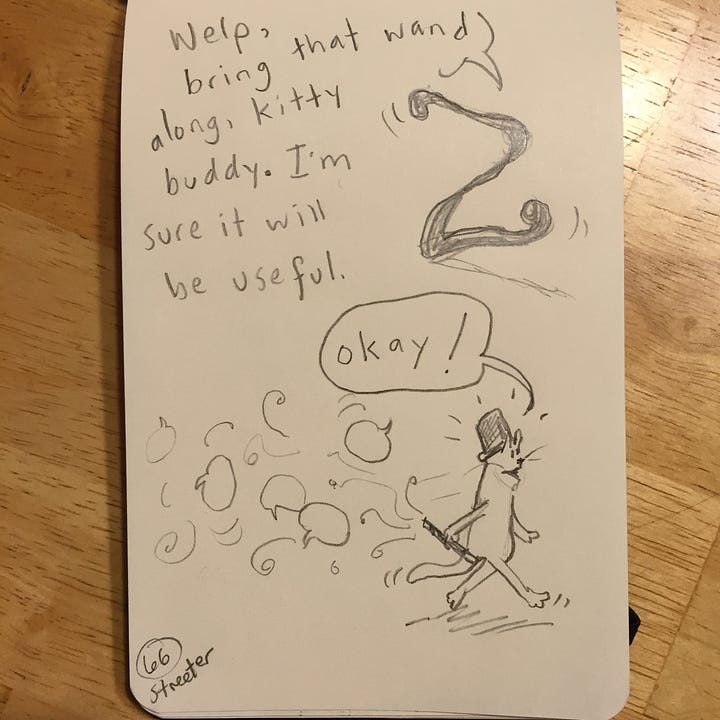 Welp,
bring that wand
along, kitty
buddy. I'm
sure it will
be useful.
okay!
66
Streeter